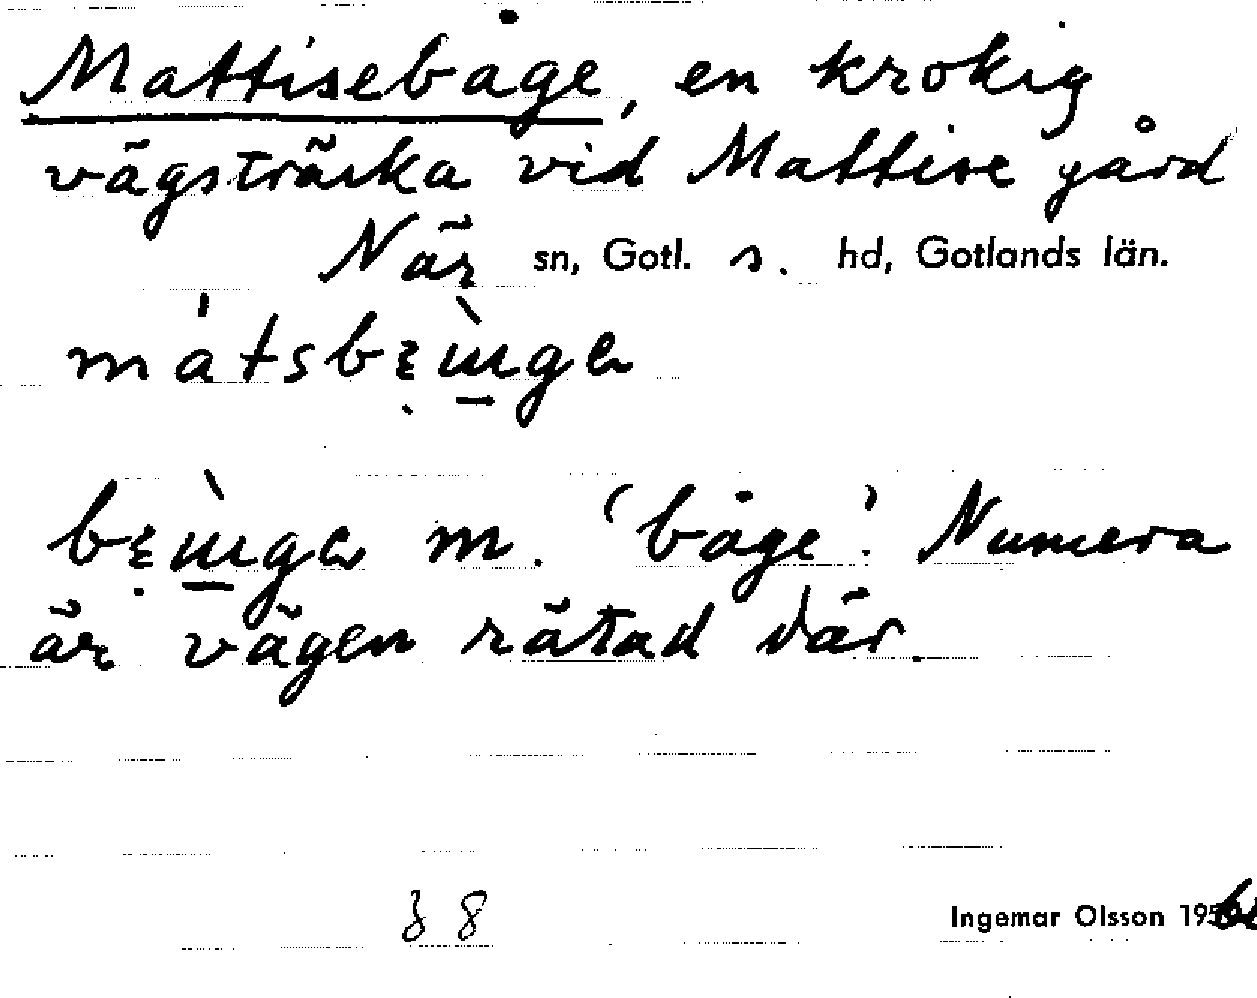 Mattisebåge, en krokig
vägsträcka vid Mattise gård
När sn, Gotl. s. hd, Gotlands län.
m
m. 'båge'. Numera
är vägen rätad där.
88
Ingemar Olsson